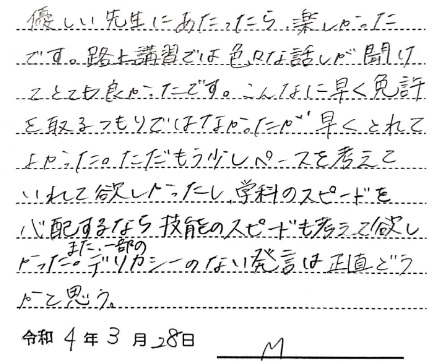 優しい先生にあたったら、楽しかった
です。路上講習では色々な話しが聞け
てとても良かったです。こんなに早く免許
を取るつもりではなかったが早くとれて
よかった。ただもう少しペースを考えて
いれて欲しかったし、学科のスピードを
心配するなら技能のスピードも考えて欲し
かった。また、一部のデリカシーのない発言は正直どう
かと思う。
令和 4 年 3 月 28日 M